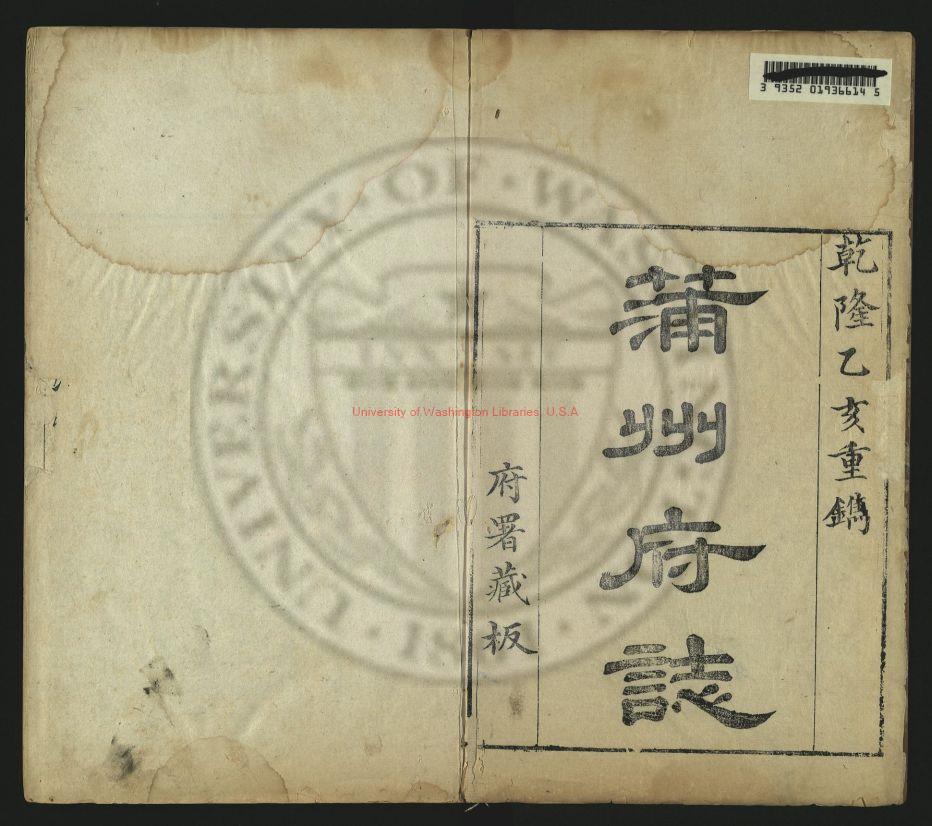 乾隆乙亥重鐫
蒲州府誌
府署藏板
3 9352 01936614 5
UNIVERSITY · OF · WA
University of Washington Libraries, U.S.A